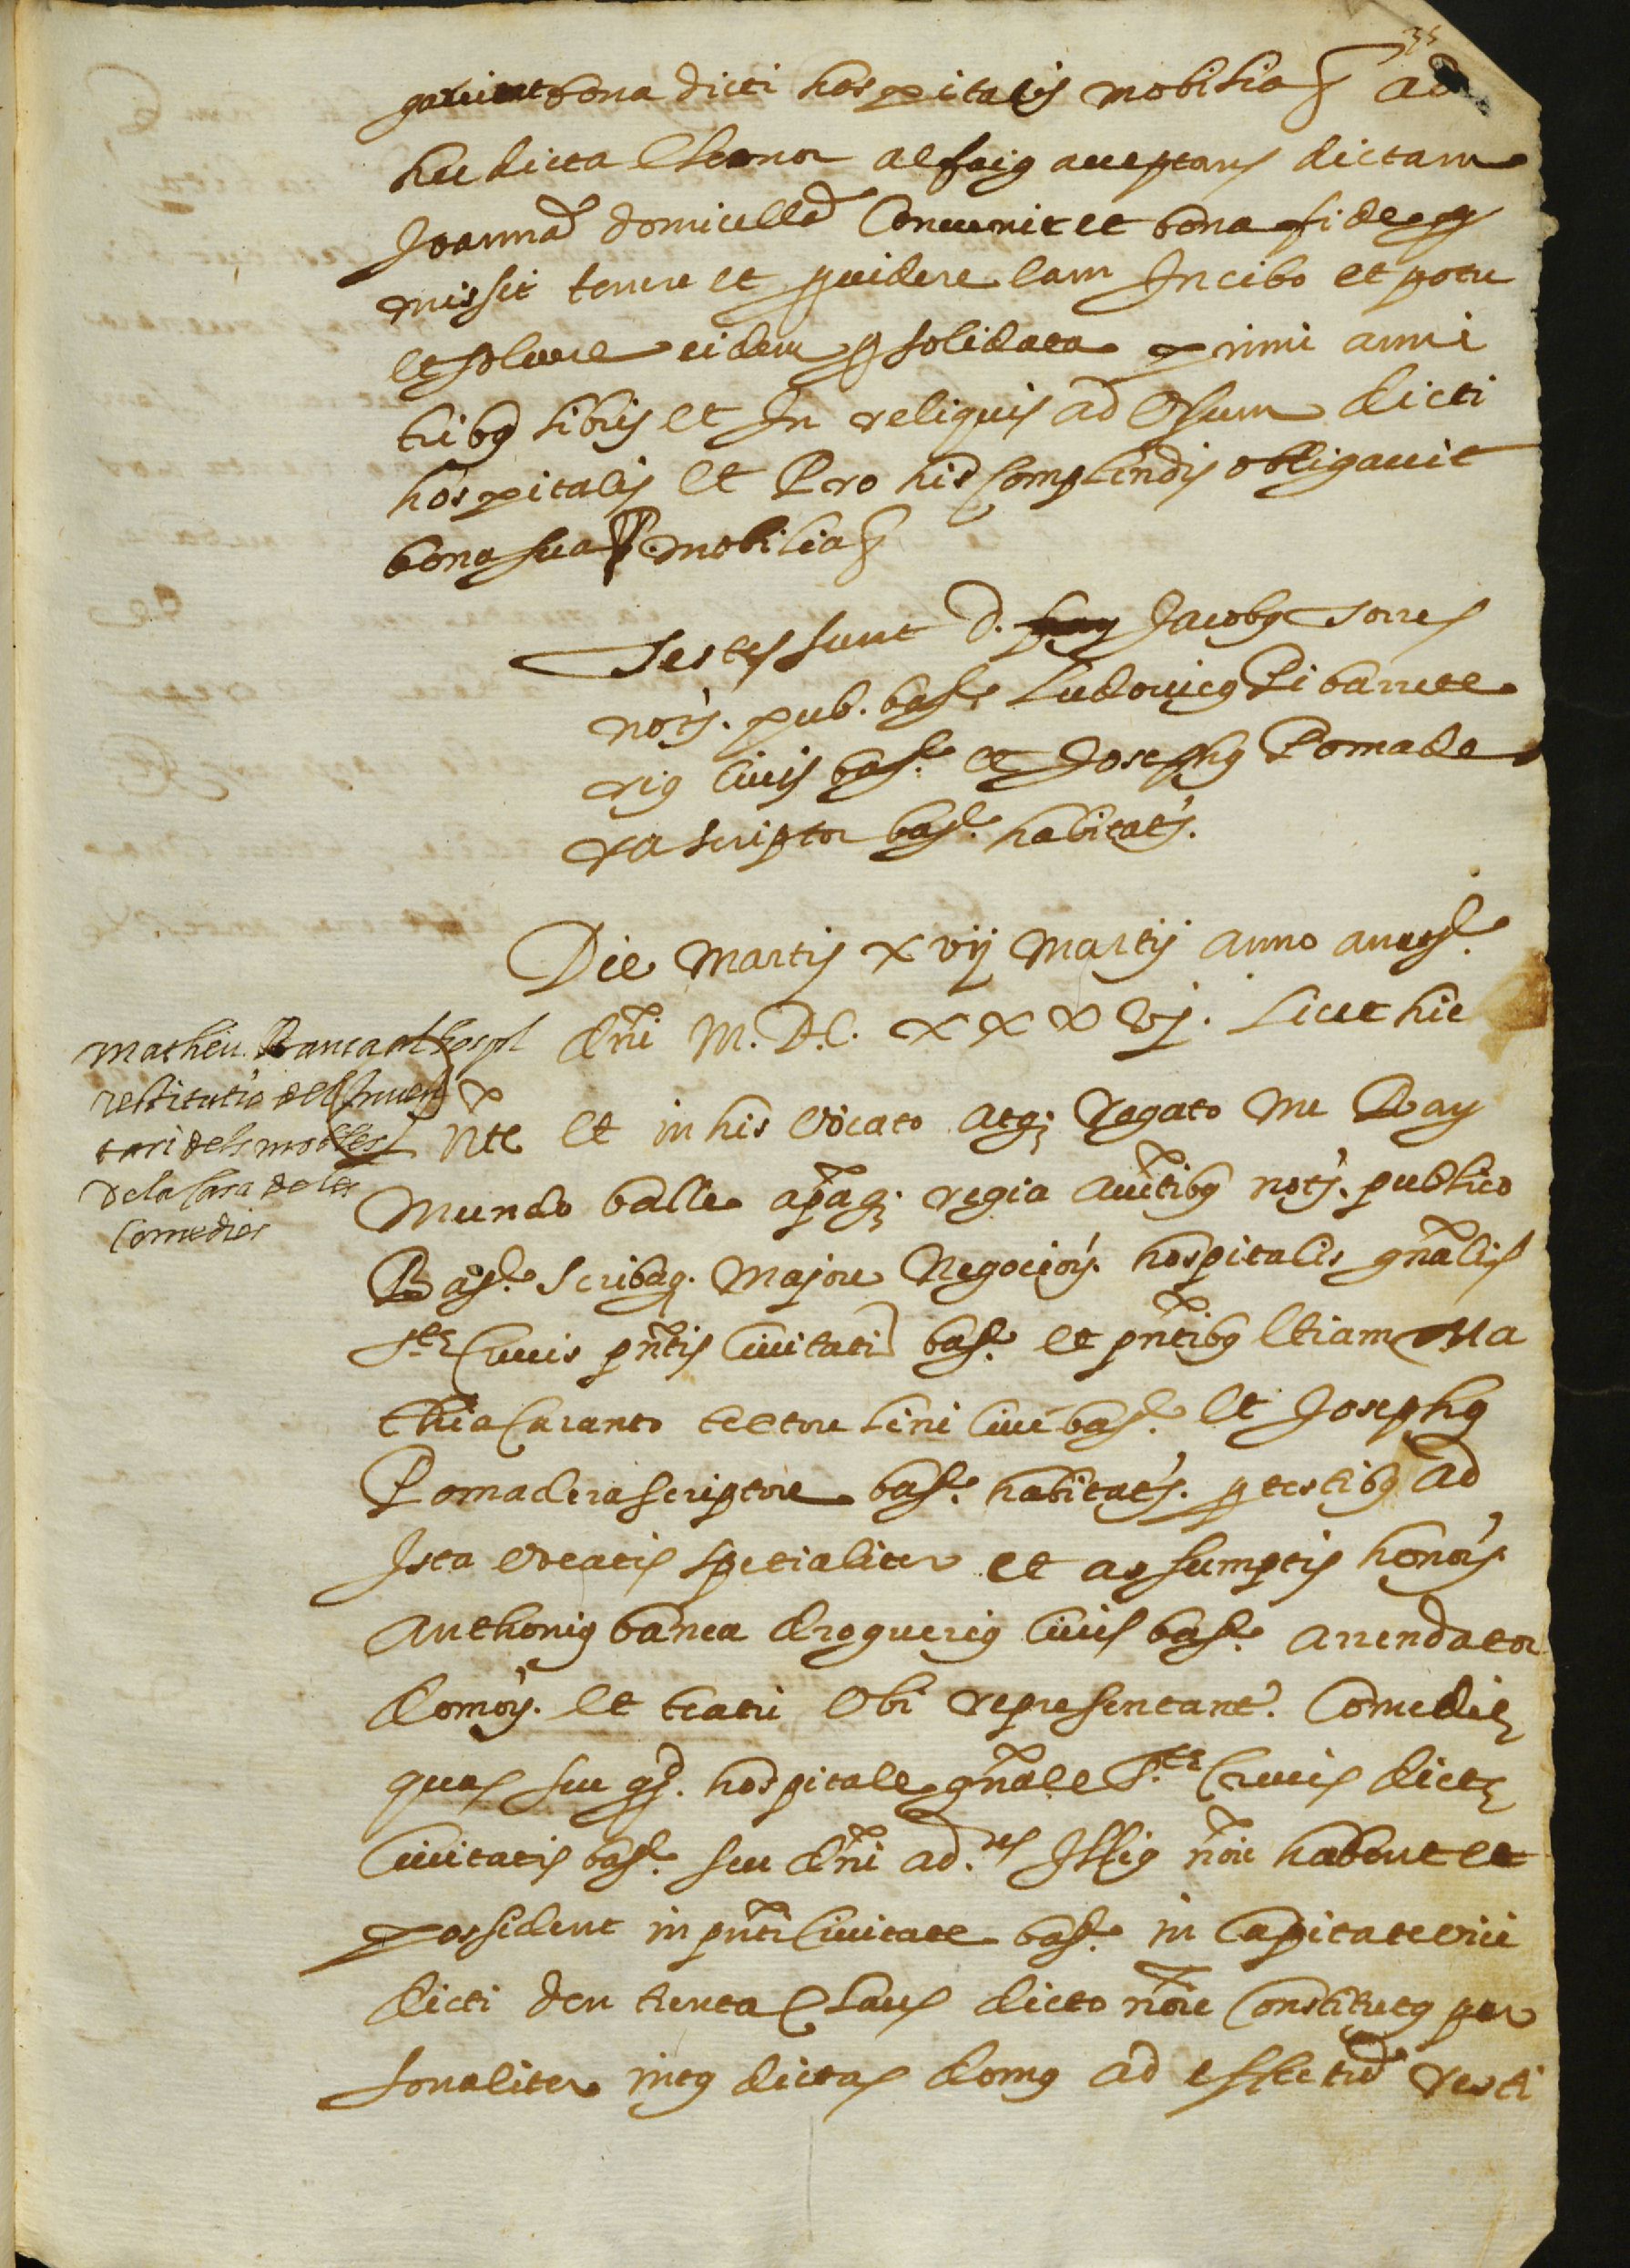 35
gavit bona dicti hospitalis mobilia & ad
hec dicta Elionor alfoig acceptans dictam
Joannã domicellã Convenit et bona fide pro
missit tenere et p̱videre eam In cibo et potu
et soluere eidem p̱ solidata primi anni
tribꝰ libris et In reliquis ad Usum dicti
hospitalis et Pro his complendis obligavit
bona sua mobilia &
Testes sunt D. Jacobꝰ Torres
notꝰ. pub. barꝰ Ludovicꝰ Ribarrete
riꝰ Civis barꝰ et Josephꝰ Pomade
ra scriptor barꝰ habitatꝰ.
Die Martis xvij Martij anno a natꝰ
dñi M.DC.xxxvj. Licet hic
Matheu Banca al hospl
restitutio del Inven
tari dels mobles
de la Casa de les
Comedies
nte et in his Vocato atqꝫ Rogato me Ray
mundo balle apcaqꝫ regia auctibꝰ notꝰ. publico
Barꝰ scribaqꝫ Majore Negociorꝰ. hospitalis gñalis
Stę Crucis pñtis Civitatis barꝰ et pñtibꝰ Etiam Ma
thia Caranto textore lini Cive barꝰ et Josephꝰ
Pomadera scriptore barꝰ habitatꝰ. p̱ testibꝰ ad
Ista Vocatis spetialiter et assumptis honorꝰ.
Anthoniꝰ banca drogueriꝰ Civis barꝰ arrendator
domorꝰ. et teatri Obi representantꝰ Comedię
quas seu qd. hospitale gñale Stę Crucis dictę
Civitatis barꝰ seu dñi ad.res Illiꝰ nõie habent et
possident in pñti Civitate barꝰ in Capite vici
dicti den trenta Claus dicto nõie Constitutꝰ per
sonaliter intꝰ dictas domꝰ ad effectũ resti